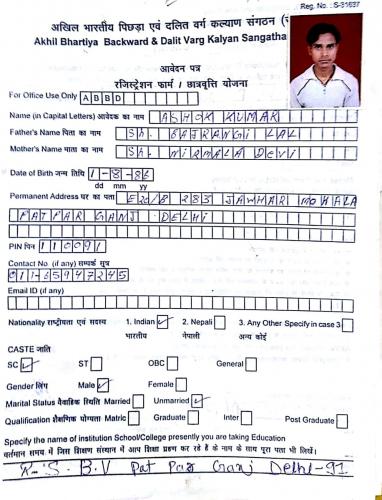 Reg. No. : S-31637
अखिल भारतीय पिछड़ा एवं दलित वर्ग कल्याण संगठन
Akhil Bhartiya Backward & Dalit Varg Kalyan Sangatha
आवेदन पत्र
रजिस्ट्रेशन फार्म / छात्रवृत्ति योजना
For Office Use Only A B B D
Name (in Capital Letters) आवेदक का नाम ASHOK KUMAR
Father's Name पिता का नाम Sh. BAJRANGI LAL
Mother's Name माता का नाम Sh. NIRMALA DEVI
Date of Birth जन्म तिथि 1-8-86
dd mm yy
Permanent Address घर का पता E20/B 283 JAWHAR MOHALA
PAT PAR GANJ DELHI
PIN पिन 110091
Contact No. (if any) सम्पर्क सूत्र
011-65947245
Email ID (if any)
Nationality राष्ट्रीयता एवं सदस्य 1. Indian ✓ 2. Nepali 3. Any Other Specify in case 3
भारतीय नेपाली अन्य कोई
CASTE जाति
SC ✓ ST OBC General
Gender लिंग Male ✓ Female
Marital Status वैवाहिक स्थिति Married Unmarried ✓
Qualification शैक्षणिक योग्यता Matric Graduate Inter Post Graduate
Specify the name of institution School/College presently you are taking Education
वर्तमान समय में जिस शिक्षण संस्थान में आप शिक्षा ग्रहण कर रहे हैं के नाम के साथ पूरा पता भी लिखें।
R-S.B.V Pat Par Ganj Delhi-91